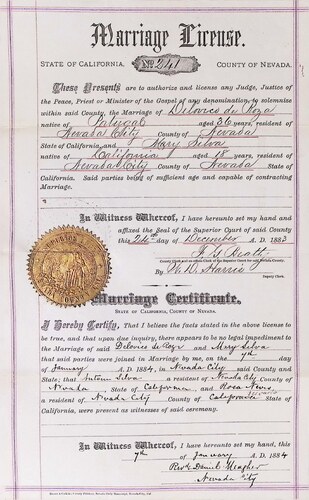 Marriage License.
STATE OF CALIFORNIA. No 241 COUNTY OF NEVADA.
These Presents are to authorize and license any Judge, Justice of
the Peace, Priest or Minister of the Gospel of any denomination, to solemnize
within said County, the Marriage of Delovico de Roza
native of Portugal aged 36 years, resident of
Nevada City County of Nevada
State of California, and Mary Silva
native of California aged 18 years, resident of
Nevada City County of Nevada State of
California. Said parties being of sufficient age and capable of contracting
Marriage.
In Witness Whereof, I have hereunto set my hand and
affixed the Seal of the Superior Court of said County
this 24th day of December A. D. 1883
F. G. Beatty
County Clerk and ex-officio Clerk of the Superior Court for said Nevada County.
By W. D. Harris
Deputy Clerk.
Marriage Certificate,
STATE OF CALIFORNIA, COUNTY OF NEVADA.
I Hereby Certify, That I believe the facts stated in the above license
to be true, and that upon due inquiry, there appears to be no legal impediment
to the Marriage of said and Mary Silva
that said parties were joined in Marriage by me, on the 7th day
of January A. D. 1884, in Nevada City said County and
State; that Antone Silva a resident of Nevada City County of
Nevada, State of California and Rosa
a resident of Nevada City County of California State of
California, were present as witnesses of said ceremony.
In Witness Whereof, I have hereunto set my hand, this
7th day of January A. D. 1884
Revd Daniel Meagher
Nevada City